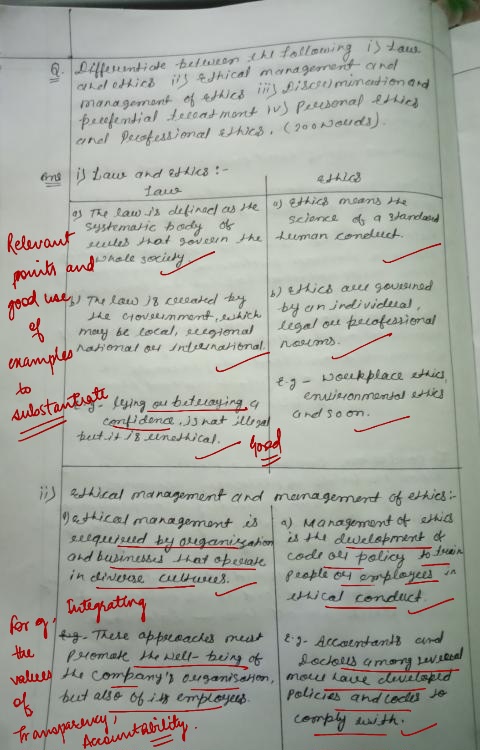 Q. Differentiate between the following i) Law
and ethics ii) Ethical management and
management of ethics iii) Discrimination and
preferential treatment iv) Personal ethics
and Professional Ethics. (200 words).
Ans i) Law and Ethics :-
Law
a) The law is defined as the
systematic body of
rules that govern the
whole society
b) The law is created by
the Government, which
may be local, regional
national or International.
E.g- lying or betraying a
confidence, is not illegal
but it is unethical.
Good
Ethics
a) Ethics means the
science of a standard
human conduct.
b) Ethics are governed
by an individual,
legal or professional
norms.
E.g - Workplace ethics,
environmental ethics
and so on.
Relevant
points and
good use
of
examples
to
substantiate
ii) Ethical management and management of ethics:-
a) Ethical management is
required by organization
and businesses that operate
in diverse cultures.
E.g- These approaches must
promote the well-being of
the company's organisation,
but also of its employees.
a) Management of ethics
is the development of
code or policy to train
people or employees in
ethical conduct.
E.g- Accountants and
Doctors among several
more have developed
policies and codes to
comply with.
For eg. Integrating
the
values
of
Transparency,
Accountability.